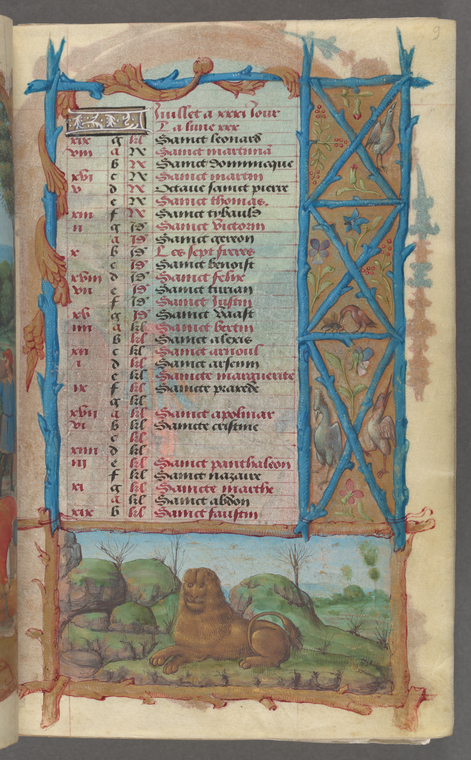 9
Juillet a xxxi Jour
La lune xxx
xix g kl Sainct leonard
viii a N Sainct martina
b N Sainct dominicque
xvi c N Sainct martin
v d N Octave sainct pierre
e N Sainct thomas
xiii f N Sainct tybauld
ii g id Sainct victorin
a id Sainct gereon
x b id Les sept freres
c id Sainct benoist
xviii d id Sainct felix
vii e id Sainct turian
f id Sainct Justin
xv g id Sainct vaast
iiii a kl Sainct bertin
b kl Sainct alexis
xii c kl Sainct arnoul
i d kl Sainct arsenin
e kl Saincte marguerite
ix f kl Saincte praxede
g kl
xvii a kl Sainct apolinar
vi b kl Saincte cristine
c kl
xiiii d kl
iii e kl Sainct panthaleon
f kl Sainct nazare
xi g kl Saincte marthe
a kl Sainct abdon
xix b kl Sainct faustin